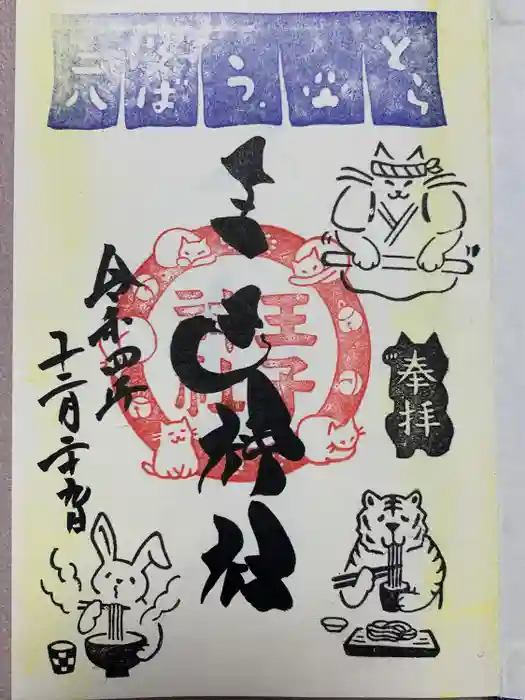 とら
う
そば
二八
奉拝
王子神社
王子
神社
令和四年
十二月二十九日